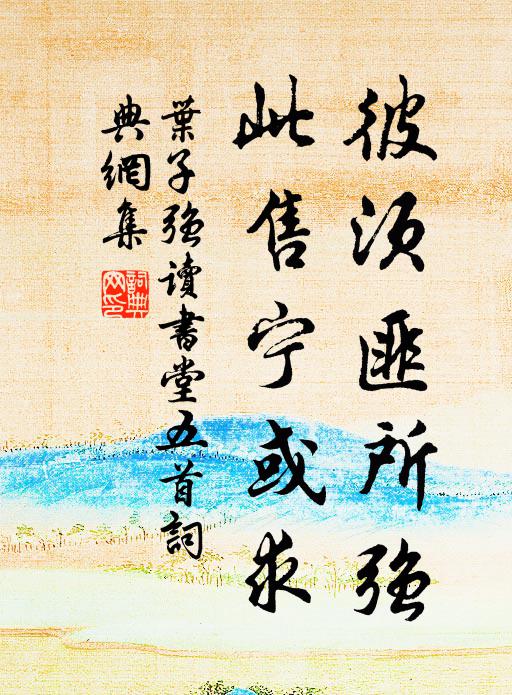 彼须匪所強
此售宁或求
葉子強讀書堂五首詞
典網集
詞典网印